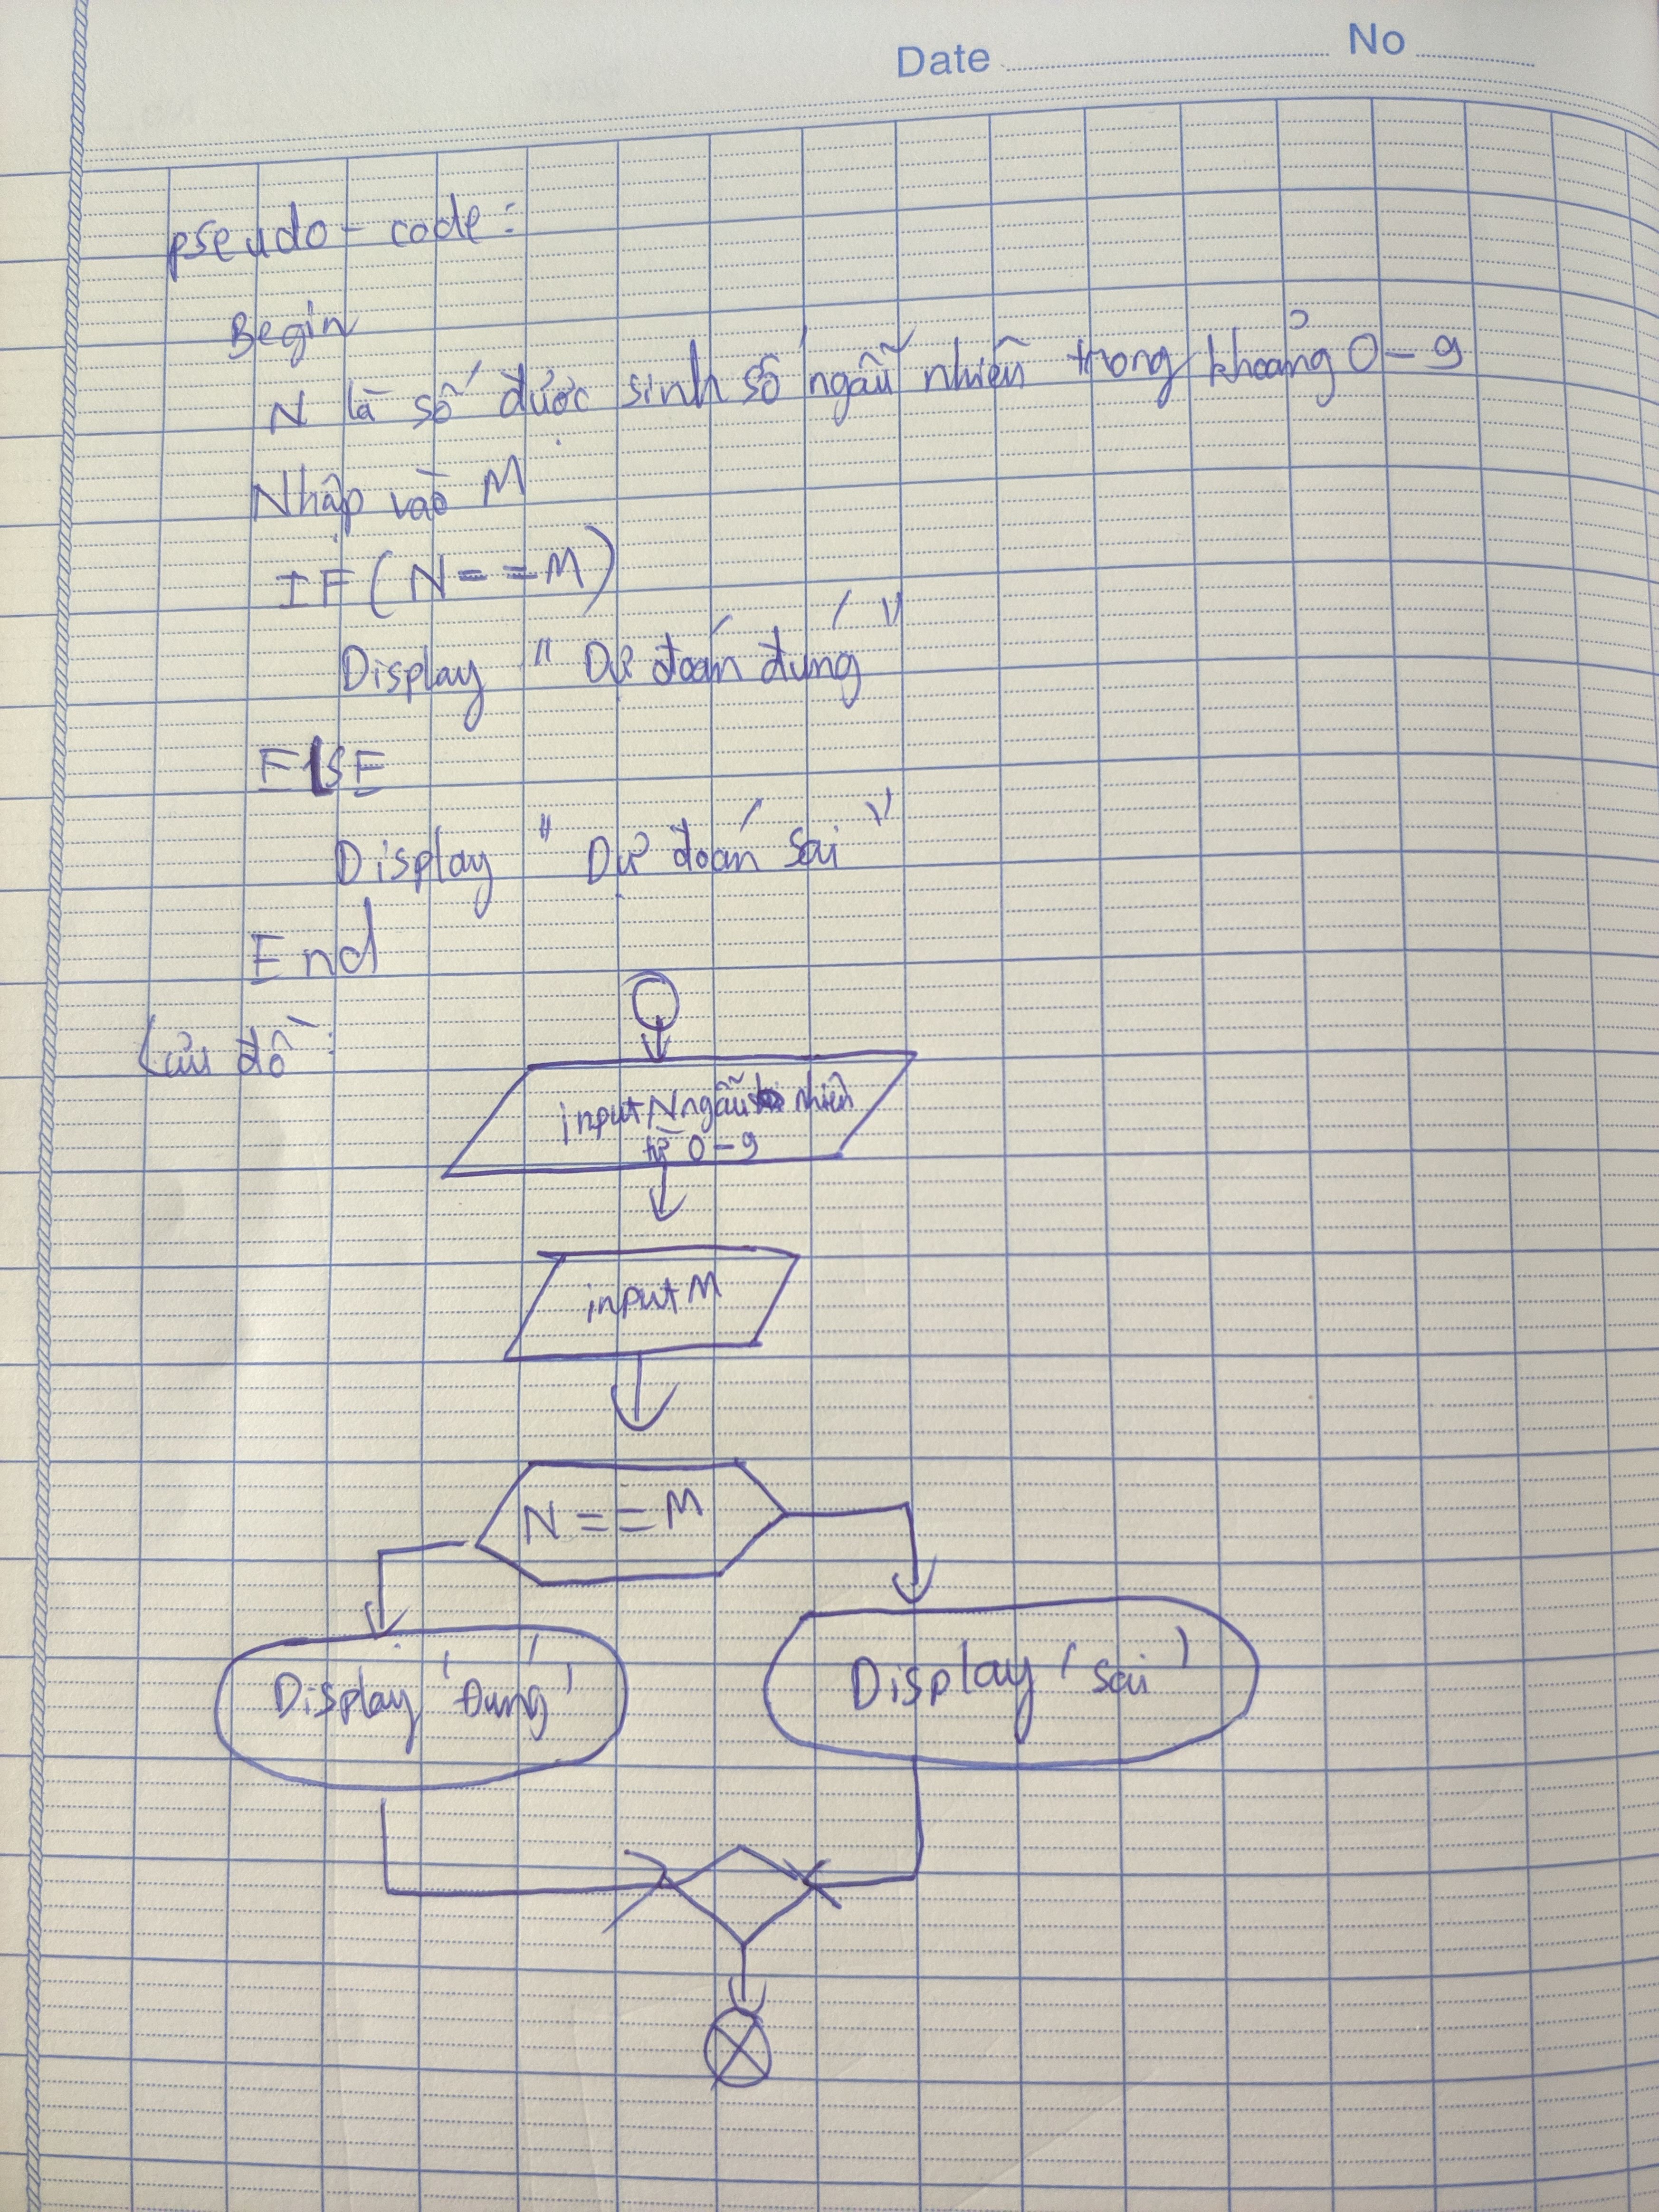 Date No
pseudo - code:
Begin
N là số được sinh số ngẫu nhiên trong khoảng 0 - 9
Nhập vào M
IF (N == M)
Display " Dự đoán đúng "
ElSE
Display " Dự đoán sai "
End
Lưu đồ:
input N ngẫu nhiên
từ 0 - 9
input M
N == M
Display 'Đúng'
Display 'sai'